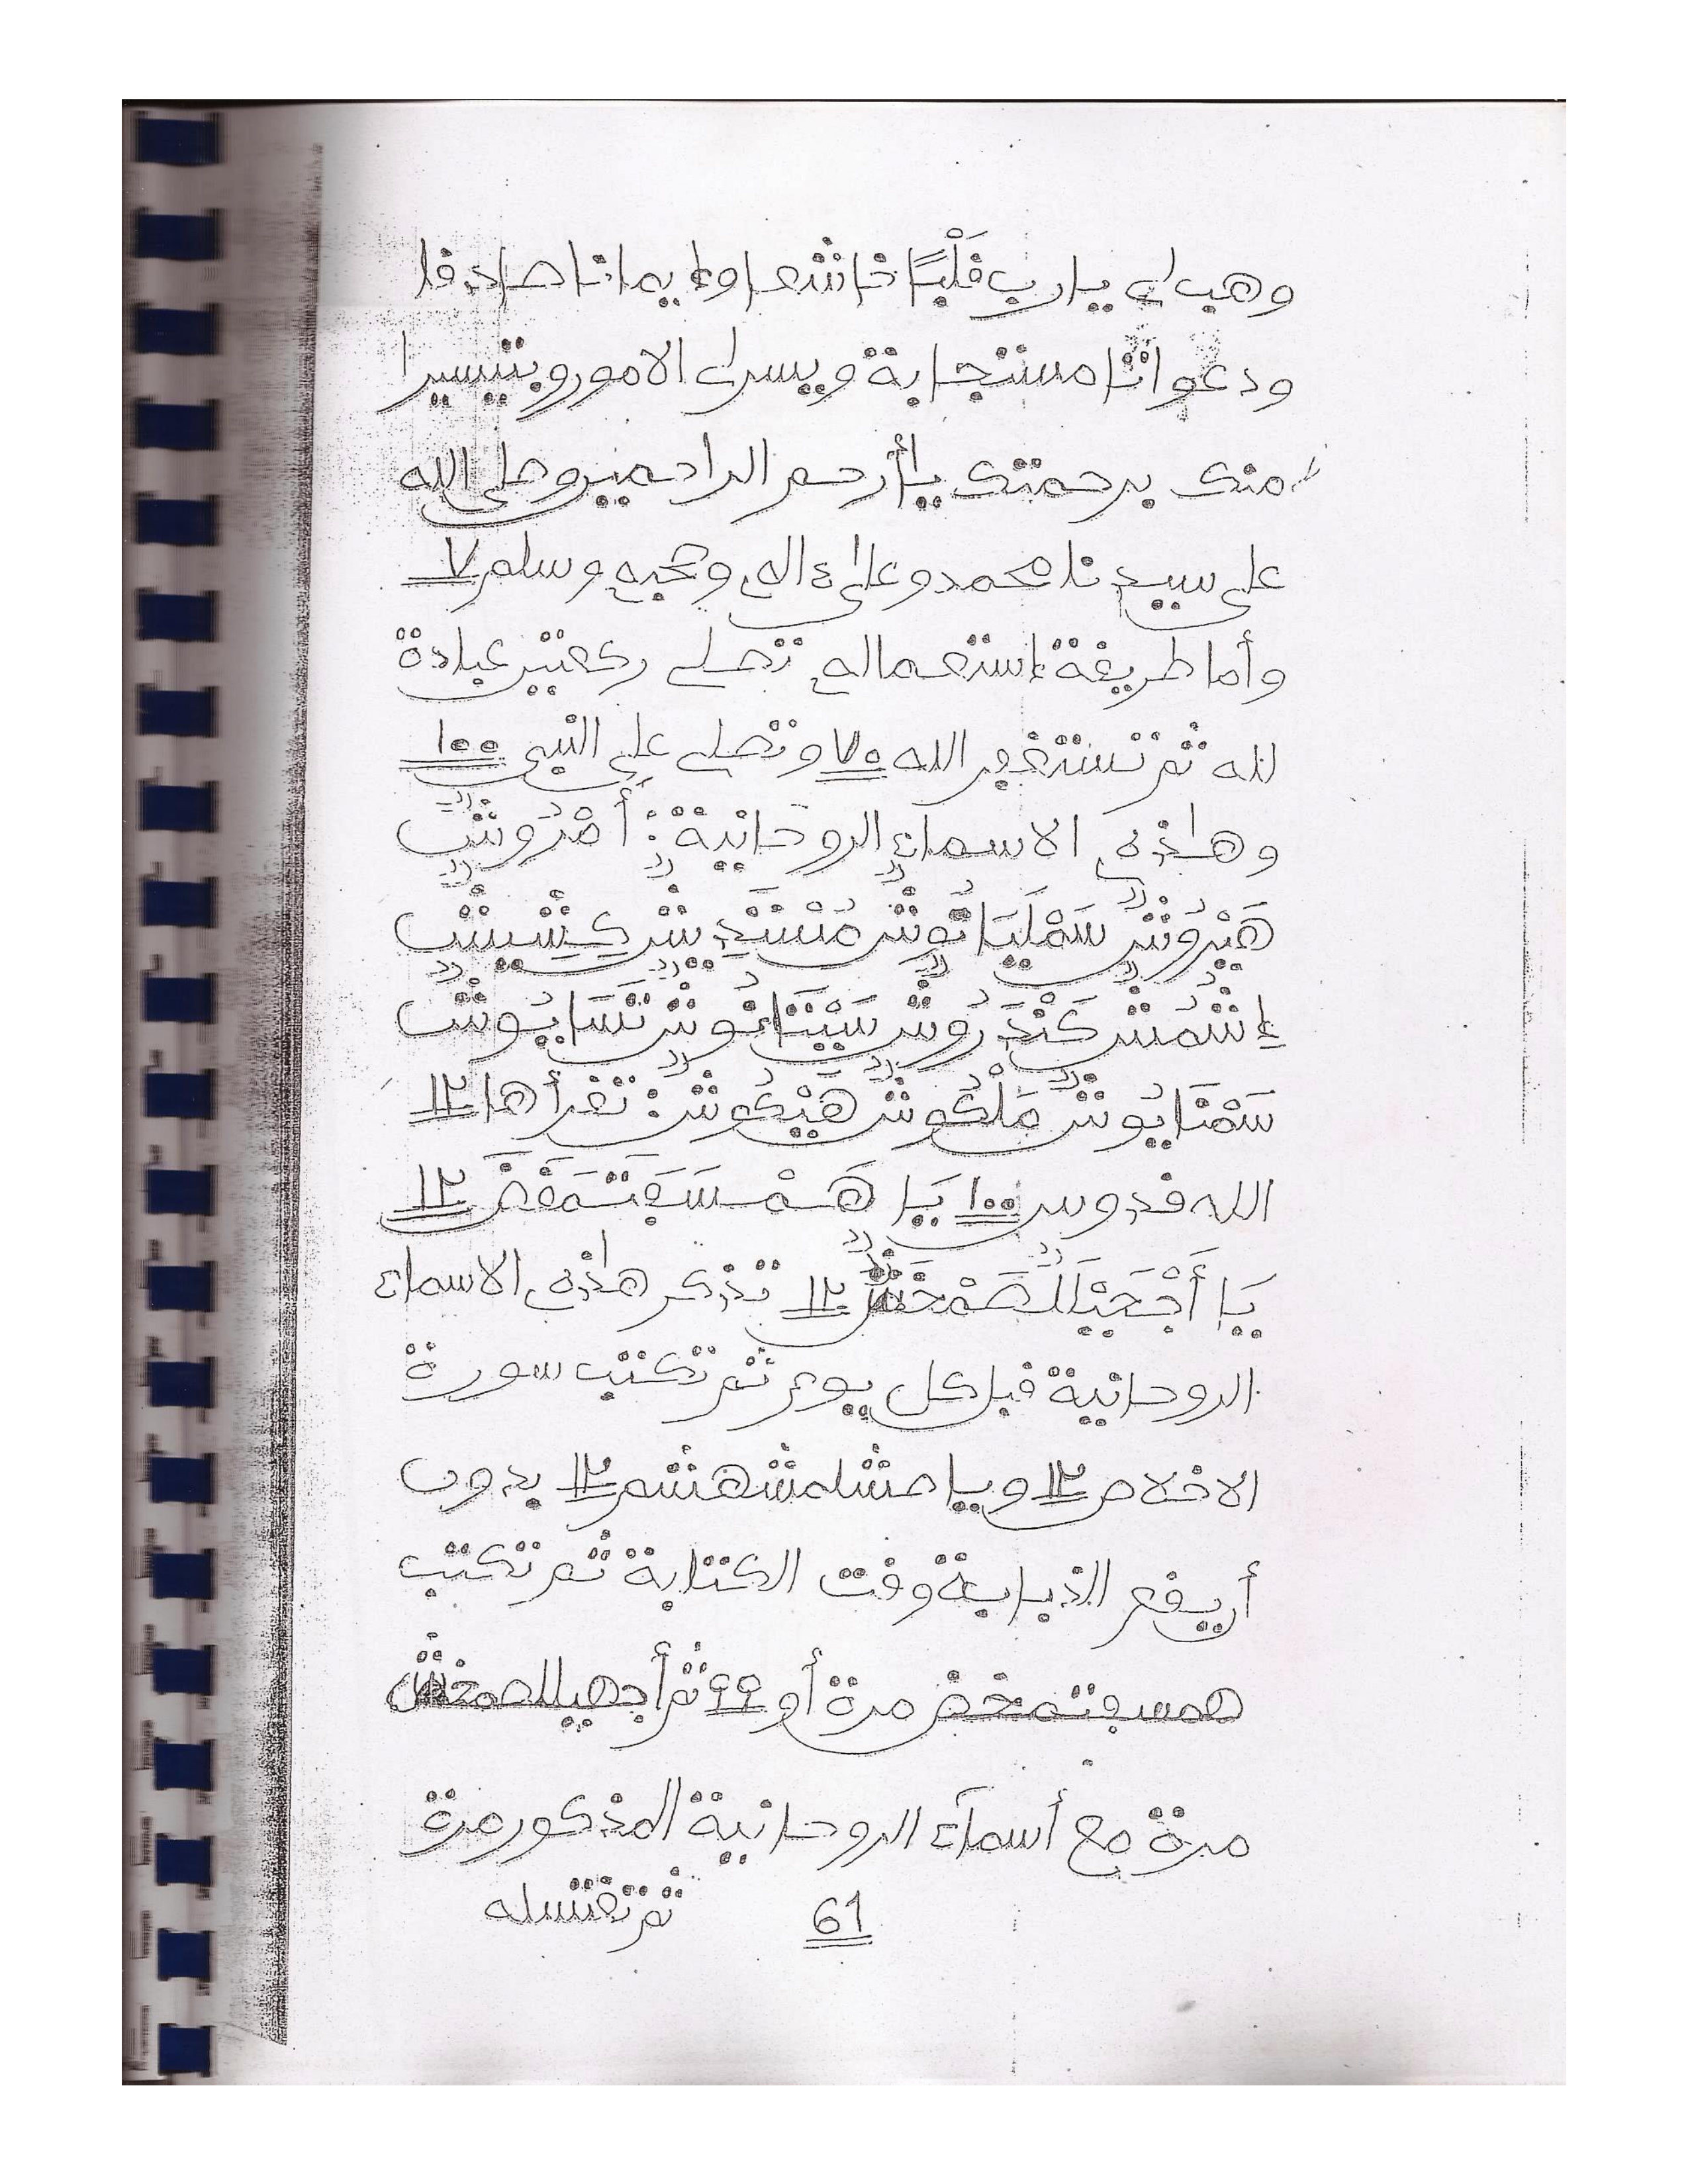 وهب لي يارب قَلْبًا خاشعا وإيمانا صادقا
ودعواتا مستجابة ويسرلي الاموروبتيسيرا
منك برحمتك يا أرحم الراحمين وصلى الله
على سيدنا محمد وعلى ءاله وصحبه وسلم ٧
وأما طريقة إستعماله تصلي ركعتين عبادة
لله ثم تستغفر الله ٧٠ وتصلي على النبي ١٠٠
وهاذه الاسماء الروحانية: أمْرُوشٌ
هَيْرُوشٌ سَمْلَيَانُوشٌ مُسْتَدِيشٌ كِشِيشٌ
إِشْمُشٌ كَنْدَرُوشٌ سَيْتَانُوشٌ نَسَايُوشٌ
سَمْنَايُوشٌ مَلْكُوشٌ هَيْكُوشٌ: تقرأها ١٢
الله قدوس ١٠٠ يَا هَمْسَقْتَمَخَضَ ١٢
يَا أَجْحَيْلَلَصَمْحَنٌ ١٢ تذكر هاذه الاسماء
الروحانية قبل كل يوم ثم تكتب سورة
الاخلاص ١٢ ويا مشلمشهشم ١٢ بدون
أن يقع الذبابة وقت الكتابة ثم تكتب
همسقتمخض مرة أو ٩٩ ثم أجهيللصمخش
مرة مع أسماء الروحانية المذكور مرة
61 ثم تغتسله